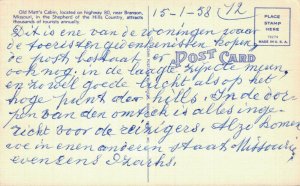 Old Matt's Cabin, located on highway 80, near Branson,
Missouri, in the Shepherd of the Hills Country, attracts
thousands of tourists annually.
15-1-58
PLACE
STAMP
HERE
MADE IN U.S.A.
POST CARD
Dit is ene van de woningen waar
de toeristen gedenkenissen kopen
de post bestaat er
ook nog. in de laagte is
en zowel goede licht als op het
hoge punt der hills. In de dor-
pen van den omtrek is alles inge-
richt voor de reizigers. Alzo komen
we in enen anderen staat Missouri
eveneens Ozarks.